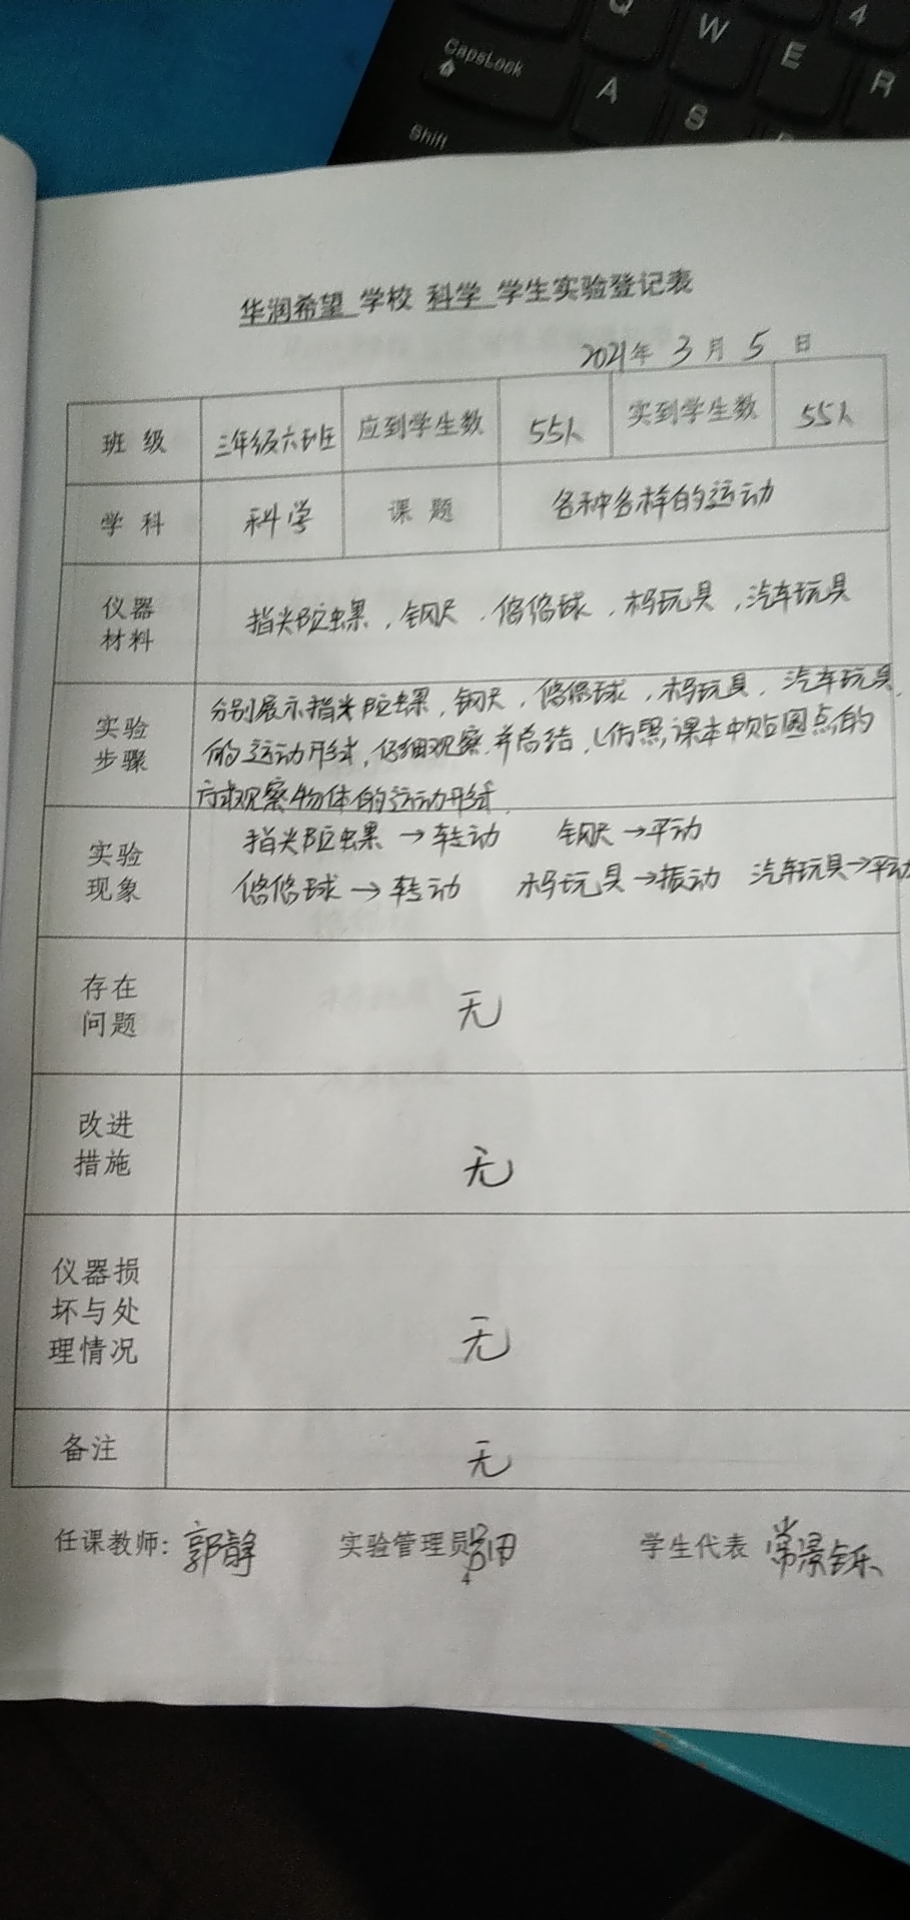 Q W E R 4
CapsLock A S
Shift
华润希望 学校 科学 学生实验登记表
2021年 3 月 5 日
班 级 三年级六班 应到学生数 55人 实到学生数 55人
学 科 科学 课 题 各种各样的运动
仪器
材料
指尖陀螺,钢尺,悠悠球,木马玩具,汽车玩具
实验
步骤
分别展示指尖陀螺,钢尺,悠悠球,木马玩具,汽车玩具
的运动形式,仔细观察,并总结,仿照课本中贴圆点的
方式观察物体的运动形式.
实验
现象
指尖陀螺→转动 钢尺→平动
悠悠球→转动 木马玩具→振动 汽车玩具→平动
存在
问题
无
改进
措施
无
仪器损
坏与处
理情况
无
备注 无
任课教师: 郭静 实验管理员 学生代表 常景铄
4